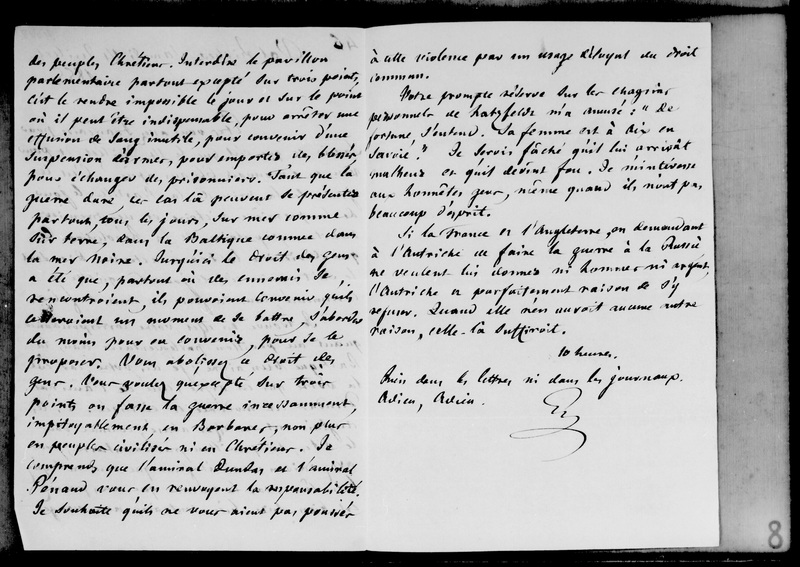 des peuples Chrétiens. Interdire le pavillon
parlementaire partout excepté sur trois points,
c'est le rendre impossible le jour et sur le point
où il peut être indispensable, pour arrêter une
effusion de sang inutile, pour convenir d'une
suspension d'armes, pour emporter des blessés,
pour échanger des prisonniers. Tant que la
guerre dure, ces cas là peuvent se présenter
partout, tous les jours, sur mer comme
sur terre, dans la Baltique comme dans
la mer Noire. Jusqu'ici le droit des gens
a été que, partout où des ennemis se
rencontroient, ils pouvoient convenir qu'ils
cesseroient un moment de se battre, s'aborder
du moins pour en convenir, pour se le
proposer. Vous abolissez ce droit des
gens. Vous voulez qu'excepté sur trois
points on fasse la guerre incessamment,
impitoyablement, en Barbares, non plus
en peuples civilisés ni en Chrétiens. Je
comprends que l'amiral Dundas et l'amiral
Pénaud vous en renvoyent la responsabilité.
Je souhaite qu'ils ne vous aient pas poussés
à cette violence par un usage déloyal du droit
commun.
Votre prompte réserve sur les chagrins
personnels de Hatzfeldt m'a amusé : " De
fortune, s'entend. Sa femme est à Aix en
Savoie." Je serois fâché qu'il lui arrivât
malheur et qu'il devînt fou. Je m'intéresse
aux honnêtes gens, même quand ils n'ont pas
beaucoup d'esprit.
Si la France et l'Angleterre, en demandant
à l'Autriche de faire la guerre à la Russie
ne veulent lui donner ni hommes ni argent,
l'Autriche a parfaitement raison de s'y
refuser. Quand elle n'en auroit aucune autre
raison, celle-là suffiroit.
10 heures.
Rien dans les lettres ni dans les journaux.
Adieu, Adieu.
8